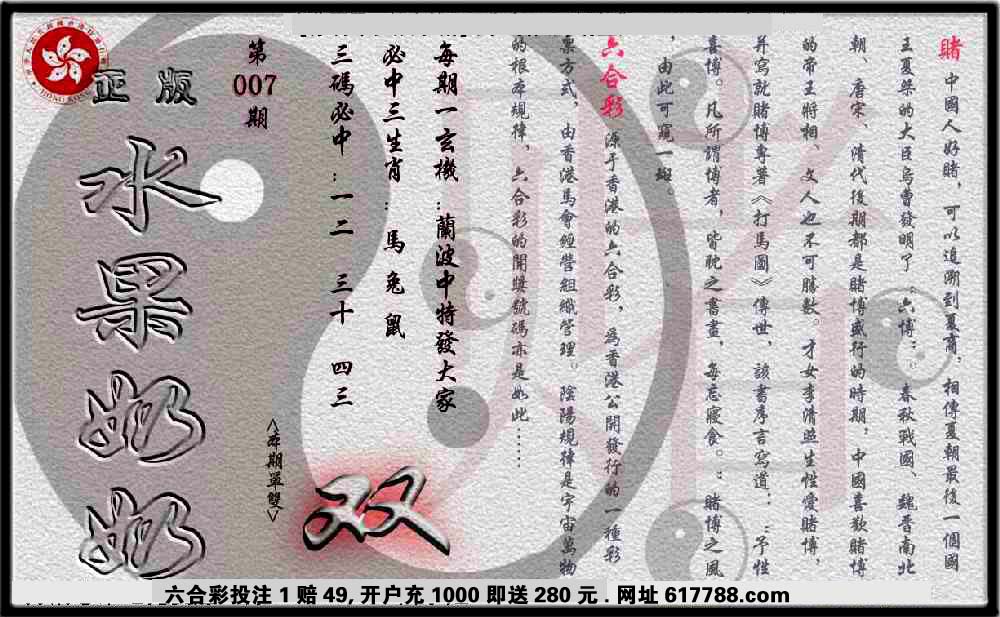 賭 中國人好賭，可以追溯到夏商。相傳夏朝最後一個國
王夏桀的大臣烏曹發明了“六博”。春秋戰國、魏晋南北
朝、唐宋、清代後期都是賭博盛行的時期，中國喜歡賭博
的帝王將相、文人也不可勝數。才女李清照生性愛賭博，
并寫就賭博專著《打馬圖》傳世，該書序言寫道：“予性
喜博。凡所謂博者，皆耽之晝晝，每忘寢食。”賭博之風
，由此可窺一斑。
六合彩 源于香港的六合彩，爲香港公開發行的一種彩
票方式，由香港馬會經營組織管理。陰陽規律是宇宙萬物
的根本規律，六合彩的開獎號碼亦是如此……
每期一玄機：蘭波中特發大家
必中三生肖：馬 兔 鼠
三碼必中：一二 三十 四三
第
007
期
<本期單雙>
双
正版
水果奶奶
HONG KONG
六合彩投注1赔49,开户充1000即送280元.网址617788.com